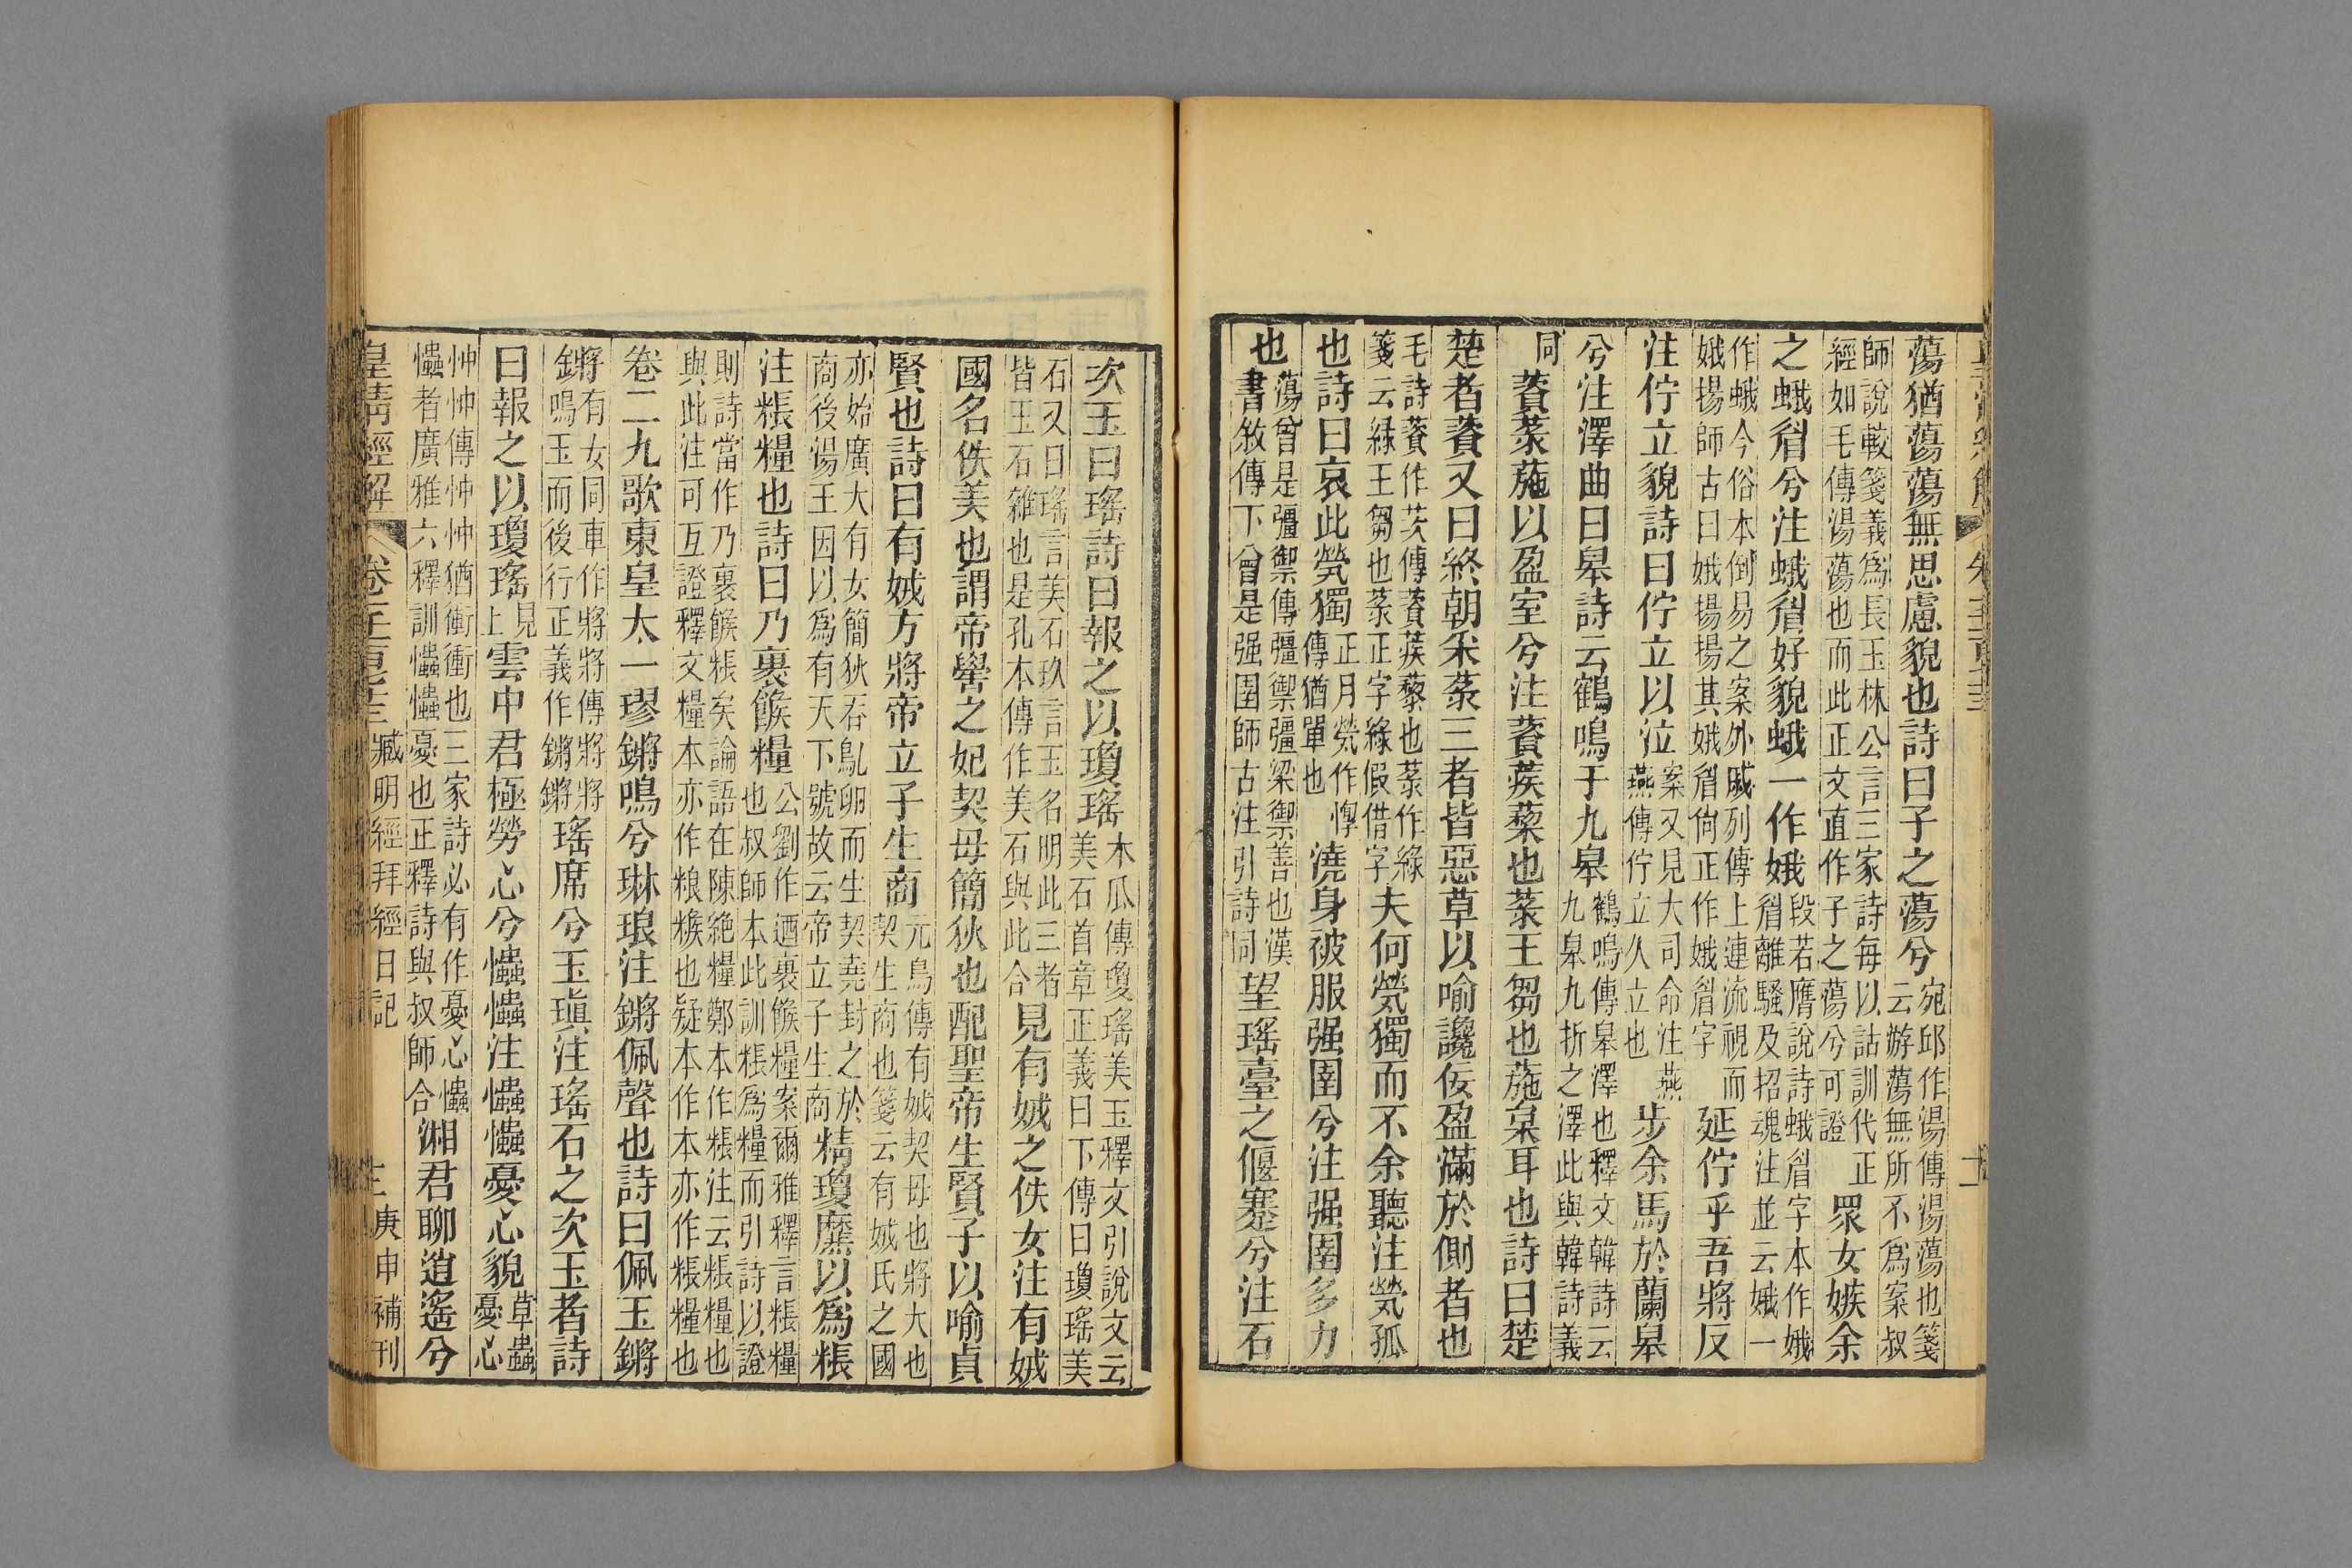 蕩猶蕩蕩無思慮貌也詩曰子之蕩兮宛邱作湯傳湯蕩也箋云游蕩無所不爲案叔
師說較箋義爲長玉林公言三家詩每以詁訓代正經如毛傳湯蕩也而此正文直作子之蕩兮可證衆女嫉余
之蛾眉兮注蛾眉好貌蛾一作娥段若膺說詩蛾眉字本作娥眉離騷及招魂注並云娥一
作蛾今俗本倒易之案外戚列傳上連流視而娥揚師古曰娥揚揚其娥眉尙正作娥眉字延佇乎吾將反
注佇立貌詩曰佇立以泣案又見大司命注燕燕傳佇立久立也步余馬於蘭皋
兮注澤曲曰皋詩云鶴鳴于九皋鶴鳴傳皋澤也釋文韓詩云九皋九折之澤此與韓詩義
同薋菉葹以盈室兮注薋蒺藜也菉王芻也葹枲耳也詩曰楚
楚者薋又曰終朝采菉三者皆惡草以喻讒佞盈滿於側者也
毛詩薋作茨傳薋蒺藜也菉作綠箋云綠王芻也菉正字綠假借字夫何煢獨而不余聽注煢孤
也詩曰哀此煢獨正月煢作惸傳猶單也澆身被服强圉兮注强圉多力
也蕩曾是彊禦傳彊禦彊梁禦善也漢書敘傳下曾是强圉師古注引詩同望瑤臺之偃蹇兮注石
次玉曰瑤詩曰報之以瓊瑤木瓜傳瓊瑤美玉釋文引說文云美石首章正義曰下傳曰瓊瑤美
石又曰瑤言美石玖言玉名明此三者皆玉石雜也是孔本傳作美石與此合見有娀之佚女注有娀
國名佚美也謂帝嚳之妃契母簡狄也配聖帝生賢子以喻貞
賢也詩曰有娀方將帝立子生商元鳥傳有娀契母也將大也契生商也箋云有娀氏之國
亦始廣大有女簡狄吞鳦卵而生契堯封之於商後湯王因以爲有天下號故云帝立子生商精瓊爢以爲粻
注粻糧也詩曰乃裹餱糧公劉作迺裹餱糧案爾雅釋言粻糧也叔師本此訓粻爲糧而引詩以證
則詩當作乃裹餱粻矣論語在陳絶糧鄭本作粻注云粻糧也與此注可互證釋文糧本亦作粮糇也疑本作本亦作粻糧也
卷二九歌東皇太一璆鏘鳴兮琳琅注鏘佩聲也詩曰佩玉鏘
鏘有女同車作將將傳將將鳴玉而後行正義作鏘鏘瑤席兮玉瑱注瑤石之次玉者詩
曰報之以瓊瑤見上雲中君極勞心兮𢥞𢥞注𢥞𢥞憂心貌草蟲憂心
忡忡傳忡忡猶衝衝也三家詩必有作憂心𢥞𢥞者廣雅六釋訓𢥞𢥞憂也正釋詩與叔師合湘君聊逍遙兮
皇淸經解
臧明經拜經日記
庚申補刊